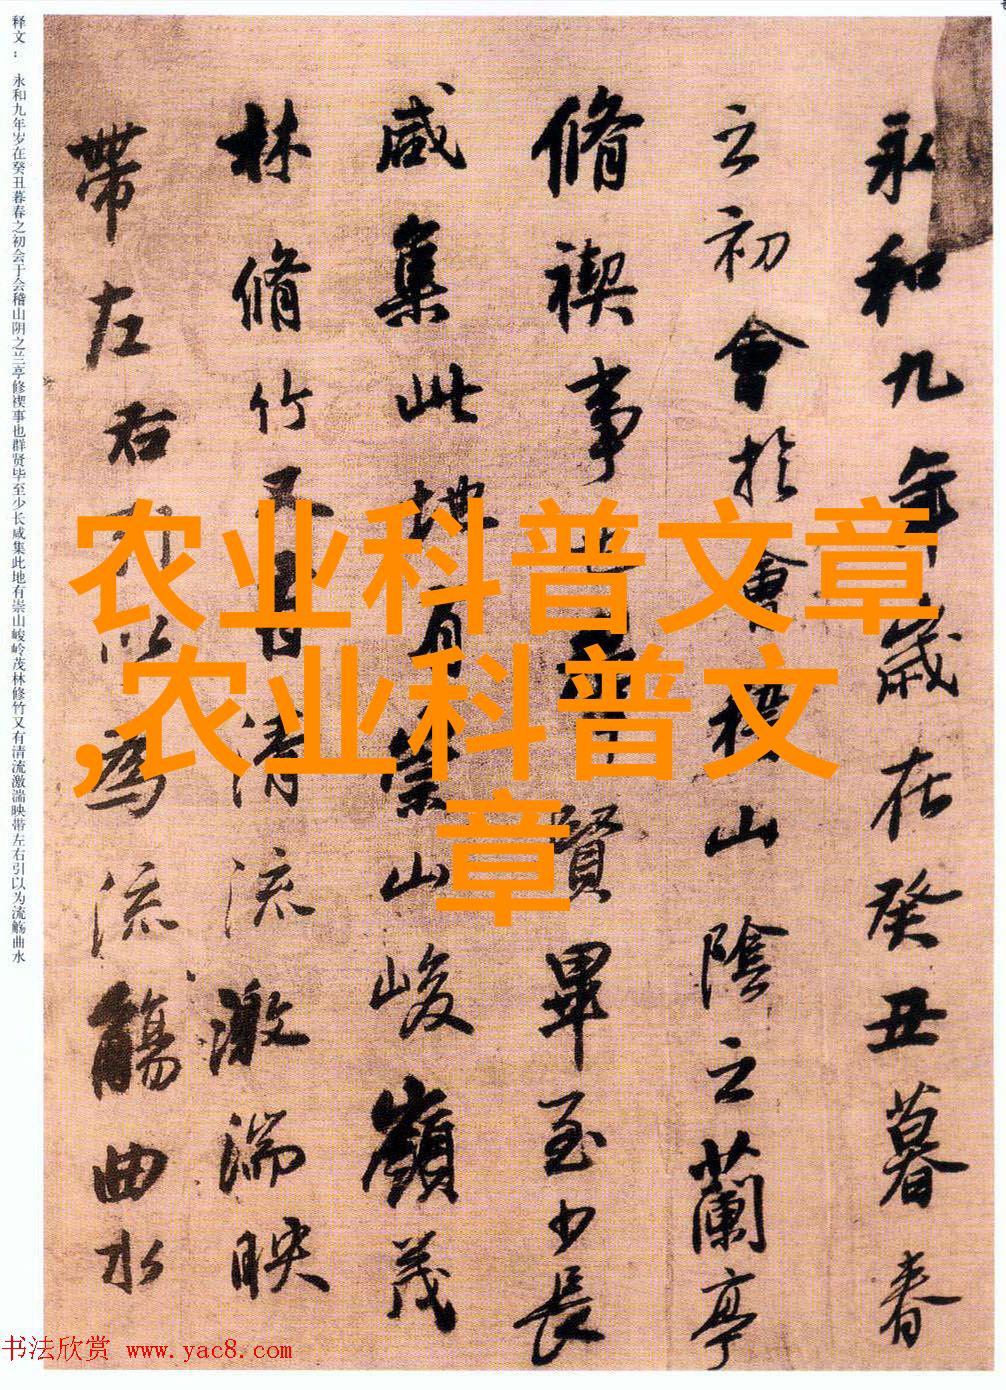 永和九年歲在癸丑暮春
之初會於會稽山陰之蘭亭
脩禊事也羣賢畢至少長
咸集此地有崇山峻嶺茂
林脩竹又有清流激湍映
帶左右引以為流觴曲水
释文：永和九年岁在癸丑暮春之初会于会稽山阴之兰亭修禊事也群贤毕至少长咸集此地有崇山峻岭茂林修竹又有清流激湍映带左右引以为流觞曲水
农业科普文章
,农业科普文
章
书法欣赏 www.yac8.com